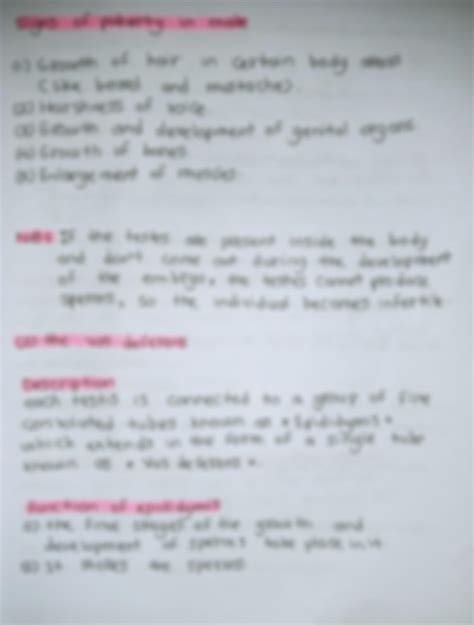 Signs of puberty in male
(1) Growth of hair in certain body areas
(like beard and mustache).
(2) Harshness of voice.
(3) Growth and development of genital organs.
(4) Growth of bones.
(5) Enlargement of muscles.
If the testes are present inside the body
and don't come out during the development
of the embryo, the testis cannot produce
sperms, so the individual becomes infertile.
(2) the vas deferens
Description
each testis is connected to a group of fine
convoluted tubes known as "Epididymis"
which extends in the form of a single tube
known as "vas deferens".
function of epididymis
(1) the final stages of the growth and
development of sperms take place in it.
(2) It stores the sperms.